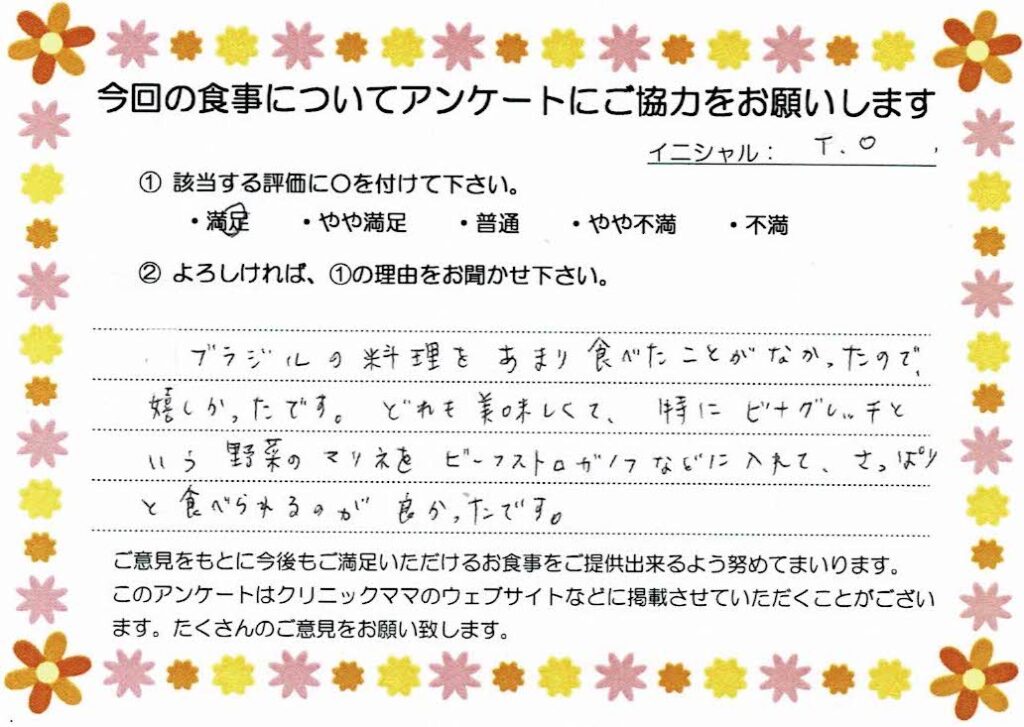 今回の食事についてアンケートにご協力をお願いします
イニシャル： T.O
① 該当する評価に〇を付けて下さい。
・満足 ・やや満足 ・普通 ・やや不満 ・不満
② よろしければ、①の理由をお聞かせ下さい。
ブラジルの料理をあまり食べたことがなかったので、
嬉しかったです。どれも美味しくて、特にビナグレッチと
いう野菜のマリネをビーフストロガノフなどに入れて、さっぱり
と食べられるのが良かったです。
ご意見をもとに今後もご満足いただけるお食事をご提供出来るよう努めてまいります。
このアンケートはクリニックママのウェブサイトなどに掲載させていただくことがござい
ます。たくさんのご意見をお願い致します。